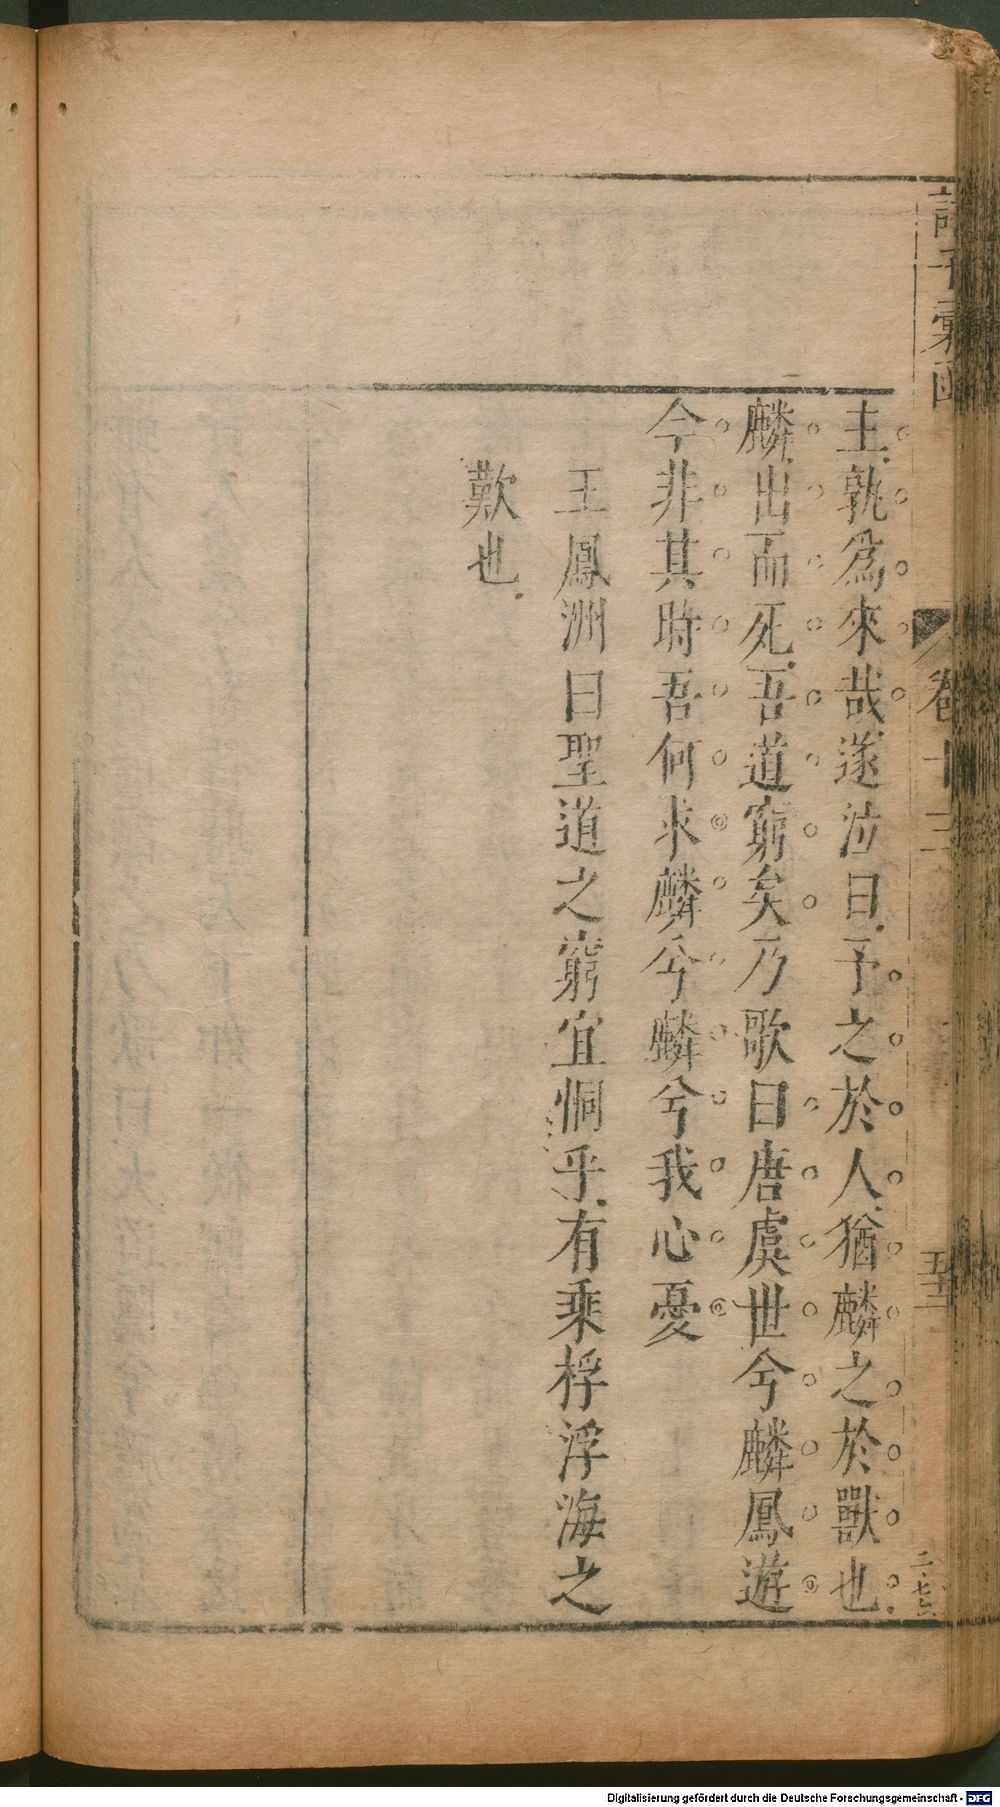 諸子彙函
卷十三
五十二
二七六
主孰爲來哉遂泣曰予之於人猶麟之於獸也
麟出而死吾道窮矣乃歌曰唐虞世兮麟鳳遊
今非其時吾何求麟兮麟兮我心憂
王鳳洲曰聖道之窮宜恫乎有乘桴浮海之
歎也
Digitalisierung gefördert durch die Deutsche Forschungsgemeinschaft - DFG